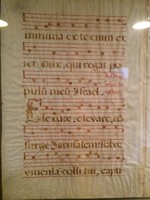 minima ex te enim ex
iet Dux, qui regat po
pulū meū Israel.
Eleuare, eleuare, con
surge Jerusalem: solve
vincula colli tui, capti